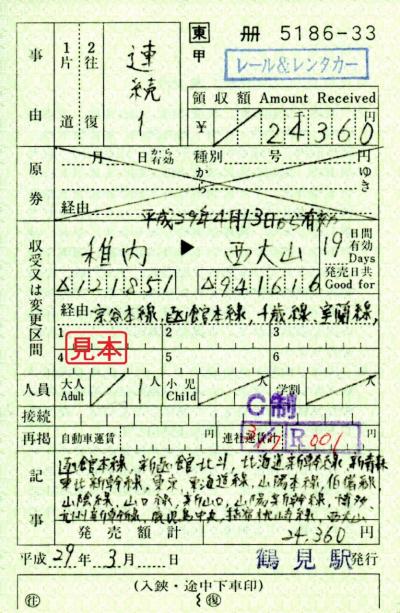 東 册 5186-33
甲
レール&レンタカー
事由
1片道
2往復
連続1
領収額 Amount Received
¥ 24,360 円
原券
月 日から有効 種別 号 円
から ゆき
経由
平成29年4月13日から有効
収受又は変更区間
稚内 ▶ 西大山
19 日間有効 Days
発売日共 Good for
△121851 △941616
経由 宗谷本線, 函館本線, 千歳線, 室蘭線,
1 2 3
4 5 6
見本
人員 大人 Adult 1人 小児 Child 人 学割 人
接続
C制
再掲 自動車運賃 円 連社運賃計 円
R001
記事
函館本線, 新函館北斗, 北海道新幹線, 新青森
東北新幹線, 東京, 東海道線, 山陽本線, 伯備線,
山陰線, 山口線, 新山口, 山陽新幹線, 博多,
九州新幹線, 鹿児島中央, 指宿枕崎線, 西大山
発売額計 24,360円
平成29年3月 日 鶴見駅発行
(入鋏・途中下車印)
往 復